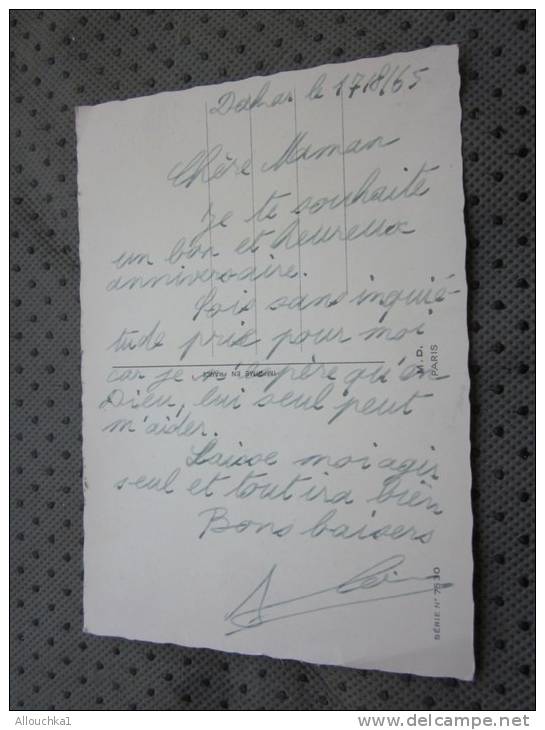 Dakar le 17/8/65
Chère Maman
Je te souhaite
un bon et heureux
anniversaire.
Sois sans inquié-
tude prie pour moi
car je n'espère qu'en
Dieu, lui seul peut
m'aider.
Laisse moi agir
seul et tout ira bien
Bons baisers
IMPRIMÉ EN FRANCE
M.D. PARIS
SÉRIE N° 7530
Allouchka1
http://www.delcampe.net